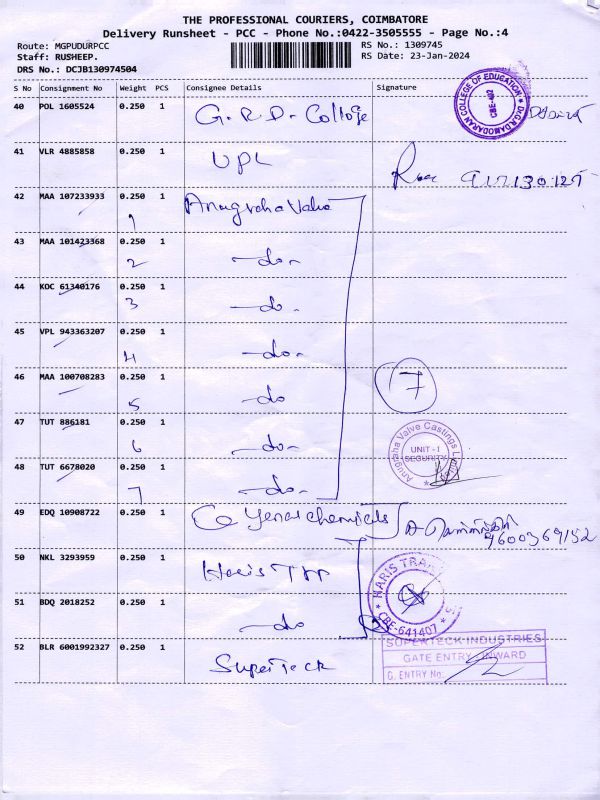 THE PROFESSIONAL COURIERS, COIMBATORE
Delivery Runsheet - PCC - Phone No.:0422-3505555 - Page No.:4
Route: MGPUDURPCC RS No.: 1309745
Staff: RUSHEEP. RS Date: 23-Jan-2024
DRS No.: DCJB130974504
S No Consignment No Weight PCS Consignee Details Signature
40 POL 1605524 0.250 1 G.R.D. College
Dr.G.R.DAMODARAN COLLEGE OF EDUCATION
41 VLR 4885858 0.250 1 UPL
42 MAA 107233933 0.250 1 Anugraha Valve
1
43 MAA 101423368 0.250 1 -do-
2
44 KOC 61340176 0.250 1 -do-
3
45 VPL 943363207 0.250 1 -do-
4
46 MAA 100708283 0.250 1 -do
5
7
47 TUT 886181 0.250 1 -do-
6
Anugraha Valve Castings Limited
UNIT - I
SECURITY
48 TUT 6678020 0.250 1 -do-
7
49 EDQ 10908722 0.250 1 chemicals
9600369152
50 NKL 3293959 0.250 1 Haris Tpp
51 BDQ 2018252 0.250 1 -do
HARIS
CBE-641407
52 BLR 6001992327 0.250 1 Superteck
SUPERTECK INDUSTRIES
GATE ENTRY INWARD
G. ENTRY No: